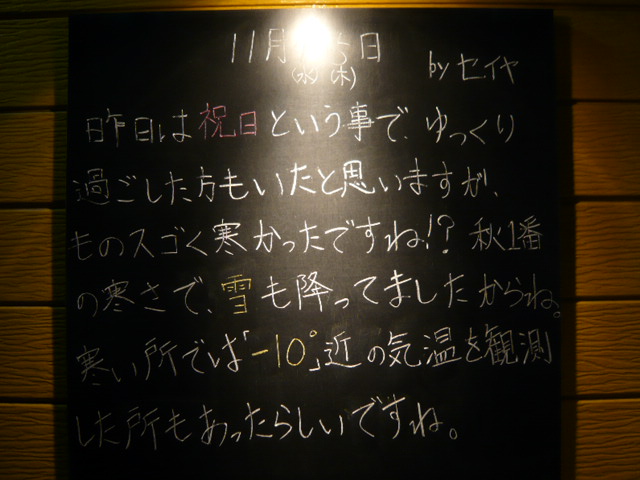 11月 5日
(水) (木)
by セイヤ
昨日は祝日という事で、ゆっくり
過ごした方もいたと思いますが、
ものスゴく寒かったですね!? 秋1番
の寒さで、雪も降ってましたからね。
寒い所では「-10°」近の気温を観測
した所もあったらしいですね。